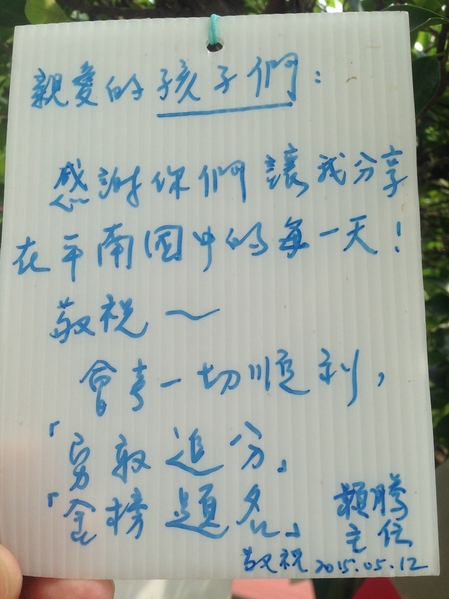 親愛的孩子們：
感謝你們讓我分享
在平南國中的每一天！
敬祝～
會考一切順利，
「勇敢追分」
「金榜題名」
穎騰
主任
敬祝 2015.05.12